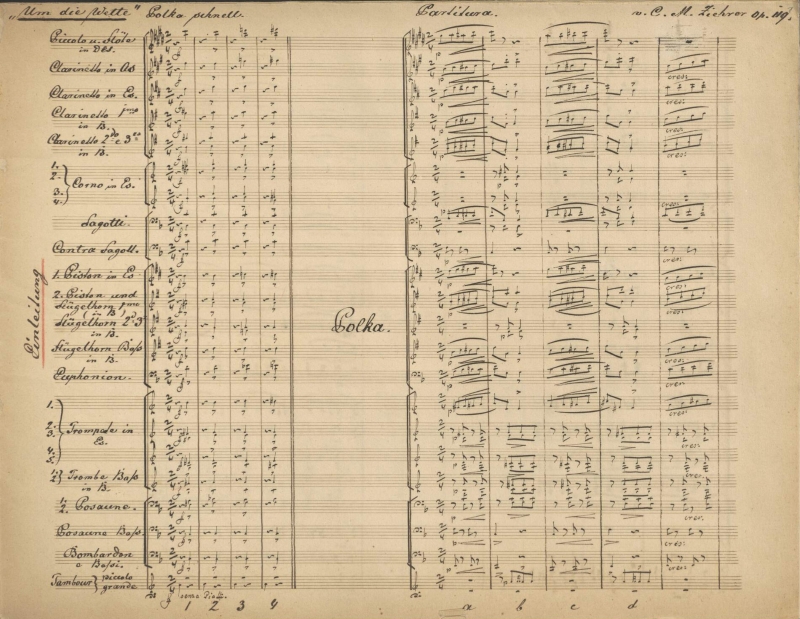 "Um die Welt" Polka schnell. Partitura. v. C. M. Ziehrer Op. 119.
Piccolo u. Flöte
in Des.
Clarinetto in As
Clarinetto in Es.
Clarinetto 1mo
in B.
Clarinetto 2do e 3zo
in B.
1.
2. Corno in Es.
3.
4.
Fagotti.
Contra Fagott.
Einleitung
1. Piston in Es
2. Piston und
Flügelhorn 1mo
in B
Flügelhorn 2do 3
in B.
Flügelhorn Bass
in B.
Euphonion.
1.
2.
3. Trompete in
Es.
4.
5.
1.
2. Tromba Bass
in B.
1.
2. Posaune.
Posaune Bass.
Bombardon
e Bassi.
Tambour piccolo
grande
Polka.
cresc.
cresc.
cresc.
cresc.
cresc.
cresc.
cresc.
cresc.
cresc.
cresc.
1 2 3 4
a b c d